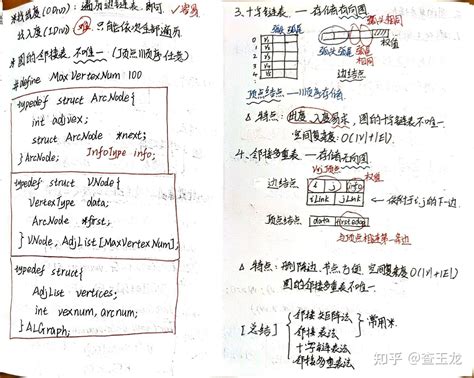 找出度(ODiv): 遍历边链表, 即可 ✓容易
找入度(IDiv) 难, 只能依次全部遍历
*图的邻接表, 不唯一 (顶点顺序为任意)
#define MaxVertexNum 100
typedef struct ArcNode{
int adjvex;
struct ArcNode *next;
}ArcNode; InfoType info;
typedef struct VNode{
VertexType data;
ArcNode *first;
} VNode, AdjList[MaxVertexNum];
typedef struct{
AdjList vertices;
int vexnum, arcnum;
} ALGraph;
3、十字链表 — 存储有向图
弧头相同
弧头 弧尾 弧头 弧尾
相同
权值
边结点
顶点结点—顺序存储
△ 特点: 出度、入度易求, 图的十字链表不唯一.
空间复杂度 O(|V|+|E|)
4、邻接多重表 — 存储无向图
权值
边结点 i j info
iLink jLink
顶点结点 data firstedge
与顶点相连第一条边
△ 特点: 删除边、节点方便, 空间复杂度 O(|V|+|E|)
图的邻接多重表不唯一.
[总结] 邻接矩阵法
邻接表法
常用来
十字链表法
邻接多重表法
知乎 @查玉龙